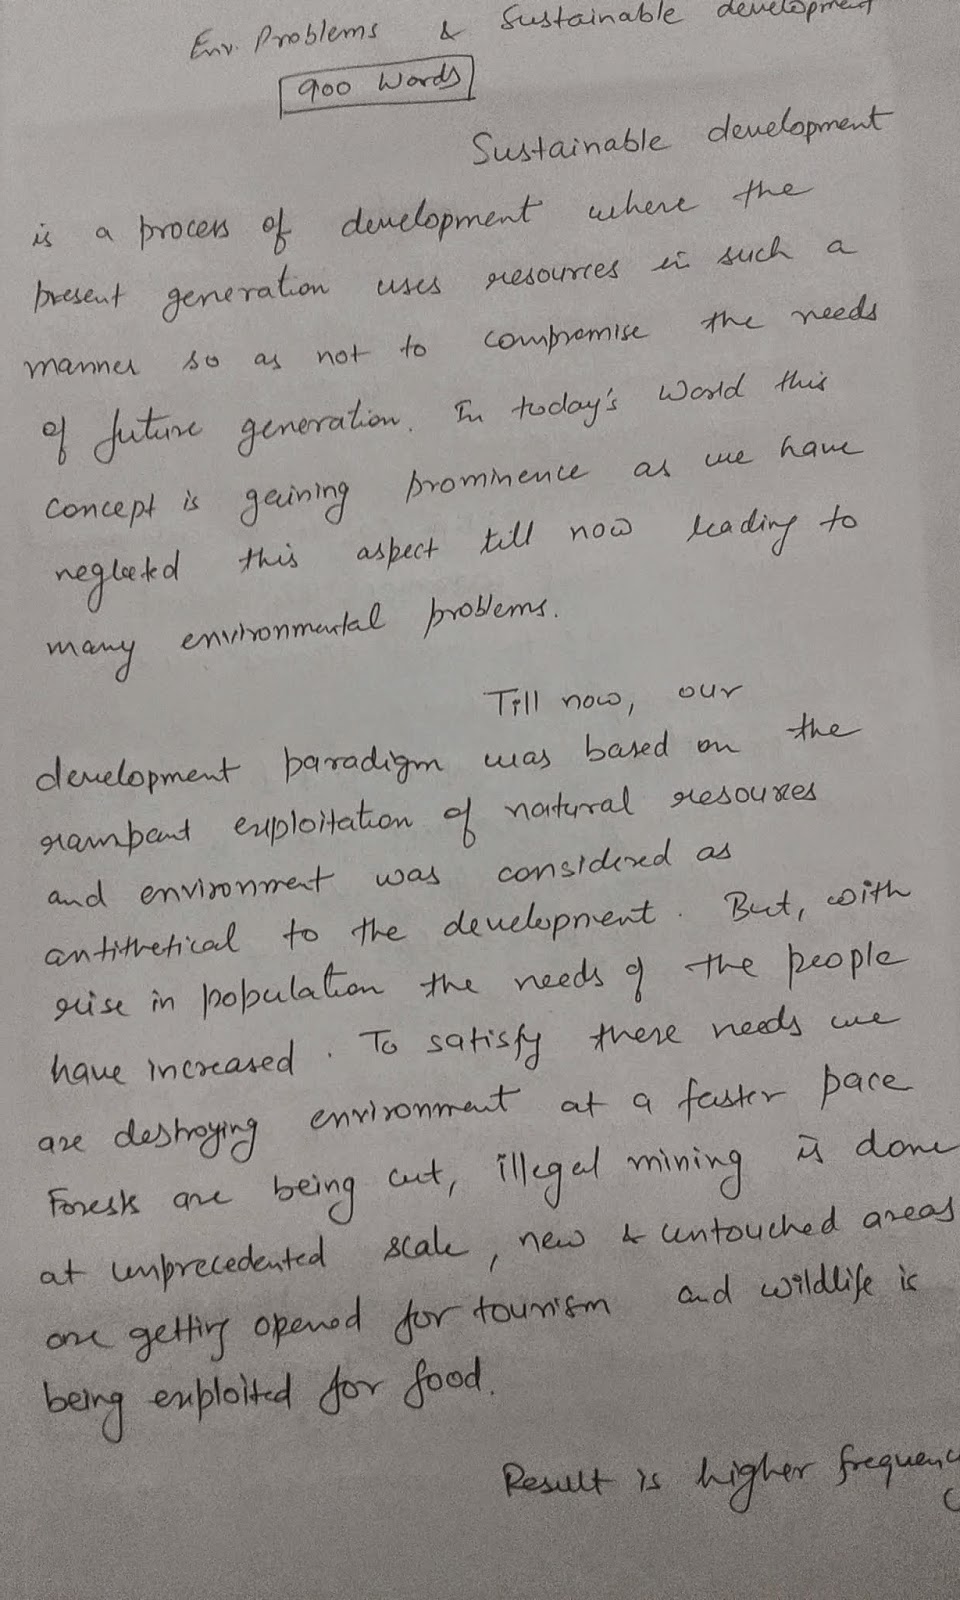 Env. Problems & Sustainable development
900 Words
Sustainable development
is a process of development where the
present generation uses resources in such a
manner so as not to compromise the needs
of future generation. In today's World this
concept is gaining prominence as we have
neglected this aspect till now leading to
many environmental problems.
Till now, our
development paradigm was based on the
rampant exploitation of natural resources
and environment was considered as
antithetical to the development. But, with
rise in population the needs of the people
have increased. To satisfy these needs we
are destroying environment at a faster pace
Forests are being cut, illegal mining is done
at unprecedented scale, new & untouched areas
are getting opened for tourism and wildlife is
being exploited for food.
Result is higher frequency